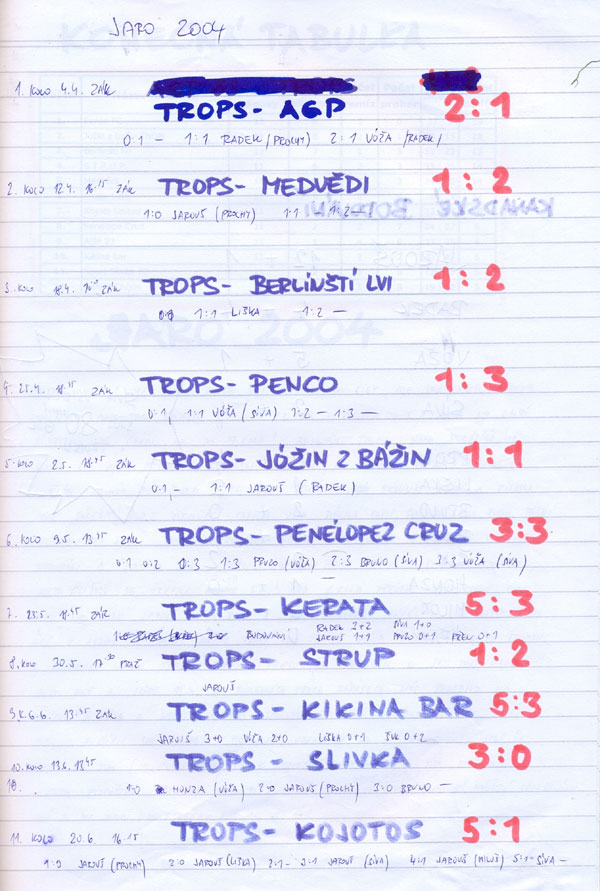 JARO 2004
1. KOLO 4.4. ZÁK TROPS- AGP 2:1
0:1 - 1:1 RADEK (PROCHY) 2:1 VÓŽA /RADEK/
2. KOLO 12.4. 16:15 ZÁK TROPS- MEDVĚDI 1:2
1:0 JAROUŠ (PROCHY) 1:1 - 1:2 -
3. KOLO 18.4. ZÁK TROPS- BERLÍNŠTÍ LVI 1:2
1:1 LIŠKA 1:2 -
25.4. ZÁK TROPS- PENCO 1:3
0:1, 1:1 VÓŽA (SÍVA) 1:2 - 1:3 -
5. KOLO 2.5. 18:45 ZÁK TROPS- JÓŽIN Z BÁŽIN 1:1
0:1, - 1:1 JAROUŠ (RADEK)
6. KOLO 9.5. 13:45 ZÁK TROPS- PENÉLOPEZ CRUZ 3:3
0:1 0:2 0:3 1:3 (VÓŽA) 2:3 BRUNO (SÍVA) 3:3 VÓŽA (SÍVA)
7. 23.5. 18:45 ZÁK TROPS- KERATA 5:3
BODOVÁNÍ RADEK 3+2 SÍVA 1+0
JAROUŠ 1+1 0+1 0+1
8. KOLO 30.5. 17:30 TROPS- STRUP 1:2
JAROUŠ
9. K. 6.6. 13:45 ZÁK TROPS - KIKINA BAR 5:3
JAROUŠ 3+0 VÓŽA 2+0 LIŠKA 0+1 0+2
10. KOLO 13.6. 13:45 TROPS - SLIVKA 3:0
10. 1:0 HONZA (VÓŽA) 2:0 JAROUŠ (PROCHY) 3:0 BRUNO -
11. KOLO 20.6. 16:15 TROPS- KOJOTOS 5:1
1:0 JAROUŠ (PROCHY) 2:0 JAROUŠ (LIŠKA) 2:1 - 3:1 JAROUŠ (SÍVA) 4:1 JAROUŠ (MILOŠ) 5:1 - SÍVA -